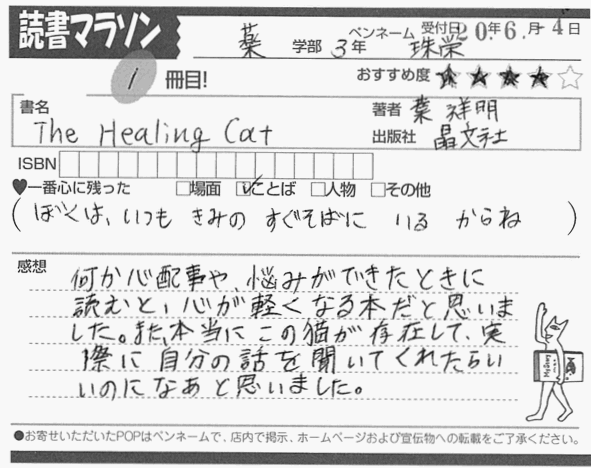 読書マラソン
薬 学部 3年 ペンネーム 珠栄 受付日 20年6月-4日
1 冊目! おすすめ度 ★★★★☆
書名 The Healing Cat
著者 葉 祥明
出版社 晶文社
ISBN
♥一番心に残った □場面 ☑ことば □人物 □その他
(ぼくは、いつも きみの すぐそばに いる からね)
感想
何か心配事や、悩みができたときに
読むと、心が軽くなる本だと思いま
した。また、本当にこの猫が存在して、実
際に自分の話を聞いてくれたらい
いのになあと思いました。
●お寄せいただいたPOPはペンネームで、店内で掲示、ホームページおよび宣伝物への転載をご了承ください。